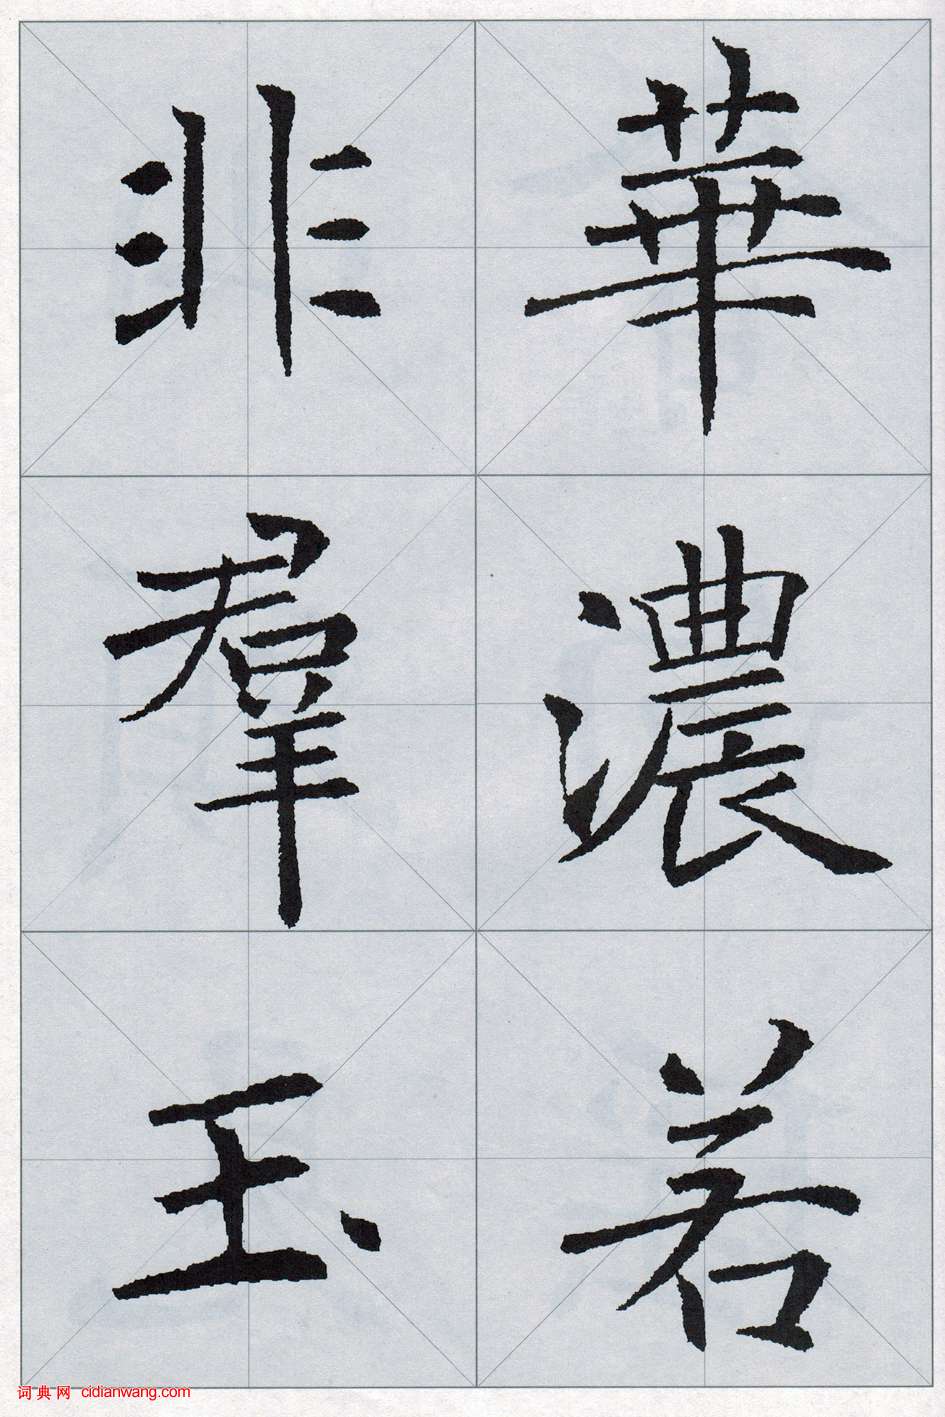 華濃若
非羣玉
词典网 cidianwang.com